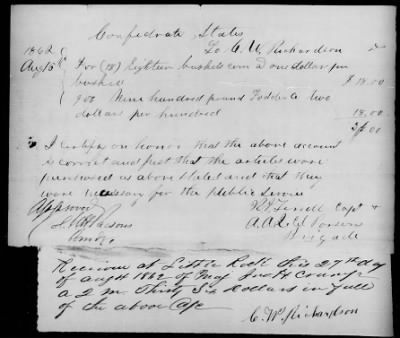 Confederate States
1862 To C. W. Richardson Dr
Aug 15th For (18) Eighteen bushels corn @ one dollar per
bushel $18.00
900 Nine hundred pound Fodder @ two
dollars per hundred 18.00
36.00
I certify on honor that the above account
is correct and just that the articles were
purchased as above stated and that they
were necessary for the public service
Approved Capt &
Parsons A.A.Q.M Parsons
Brigade
Received at Little Rock this 27th day
of Augt 1862 of Maj
a Q M Thirty Six dollars in full
of the above
C. W. Richardson